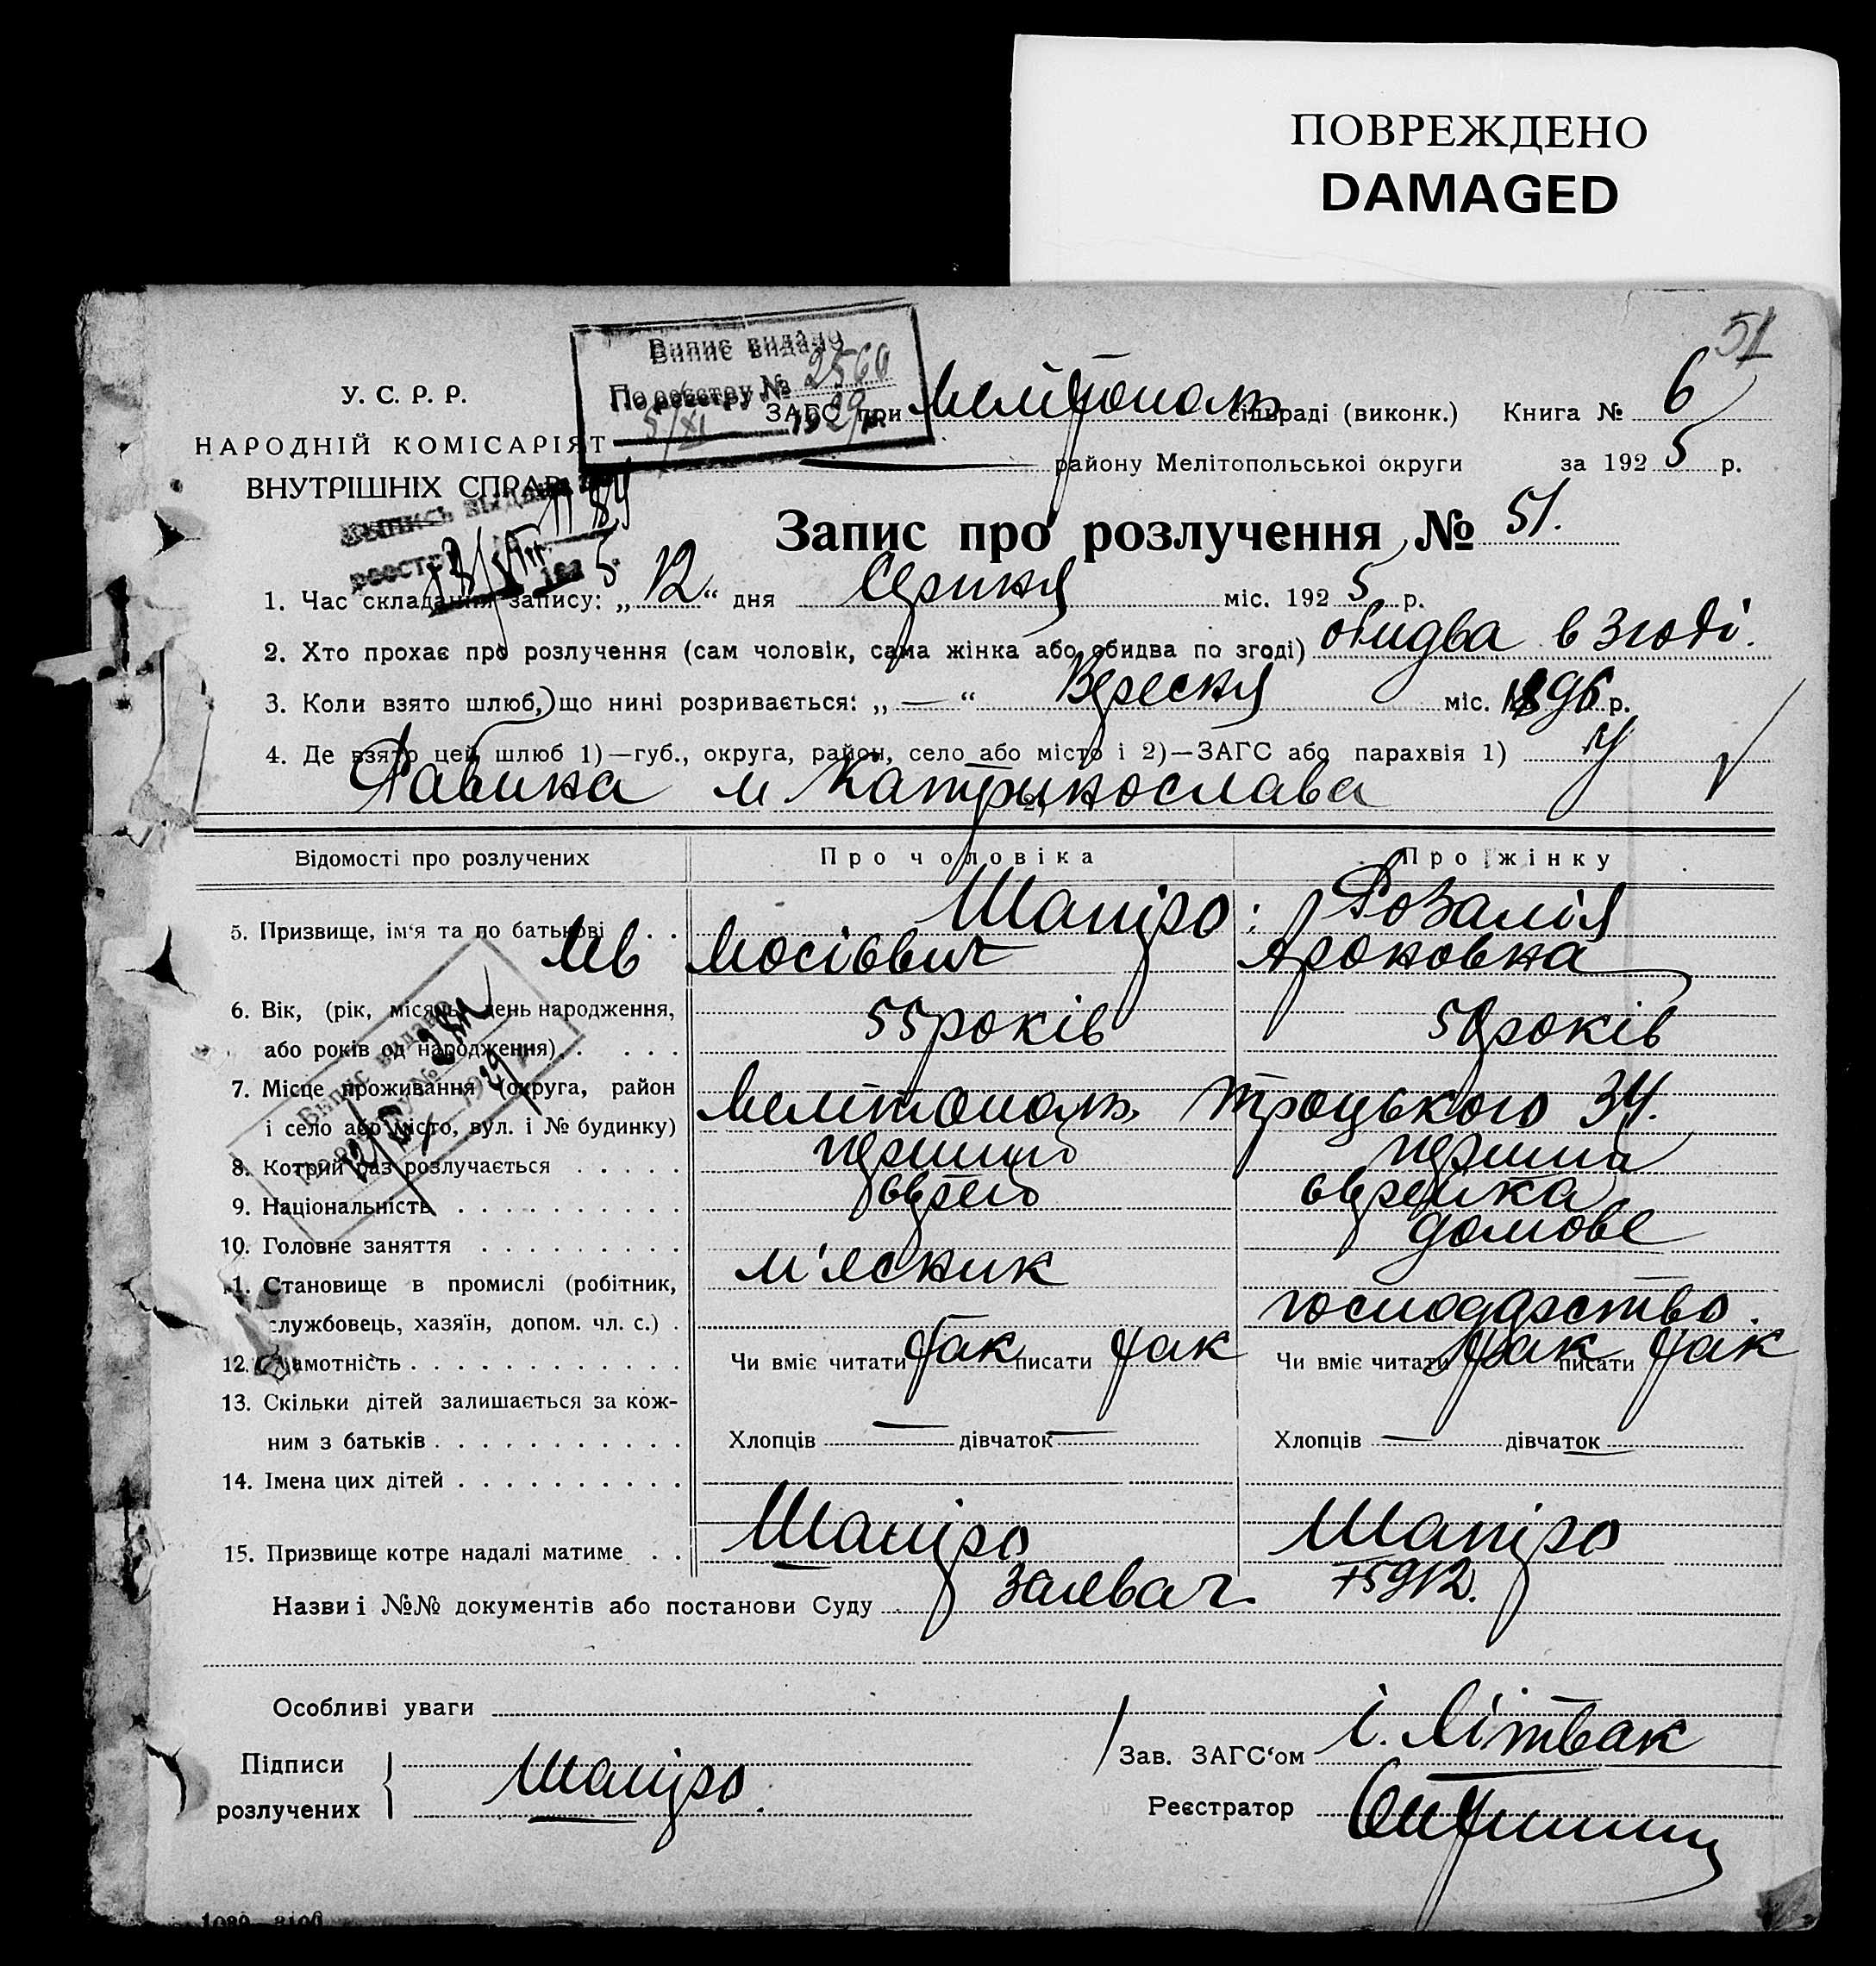 ПОВРЕЖДЕНО
DAMAGED
51
Випис видано
По реєстру № 2560
5/XI 1929 р.
У. С. Р. Р.
НАРОДНІЙ КОМІСАРІЯТ
ВНУТРІШНІХ СПРАВ
ЗАГС при Мелітополь сільраді (виконк.) Книга № 6
району Мелітопольської округи за 1925 р.
Выпись
реестр
13/VIII 1925
Запис про розлучення № 51.
1. Час складання запису: „12“ дня Серпня міс. 1925 р.
2. Хто прохає про розлучення (сам чоловік, сама жінка або обидва по згоді) обидва в згоді.
3. Коли взято шлюб, що нині розривається: „—“ Вересня міс. 1896 р.
4. Де взято цей шлюб 1)—губ., округа, район, село або місто і 2)—ЗАГС або парахвія 1) у
Рабина м Катеринослава
Відомості про розлучених
Про чоловіка
Про жінку
5. Призвище, ім'я та по батькові . .
Шапіро: Розалія
Лев Мосієвич Ароновна
6. Вік, (рік, місяць, день народження,
або років од народження) . . . . .
55 років
50 років
Випис видано
7. Місце проживання (округа, район
і село або місто, вул. і № будинку)
Мелітополь Троцького 34.
8. Котрий раз розлучається . . . . .
перший
перший
9. Національність . . . . . . . . . .
єврей
єврейка
10. Головне заняття . . . . . . . . .
м'ясник
домове
господарство.
11. Становище в промислі (робітник,
службовець, хазяїн, допом. чл. с.) .
12. Грамотність . . . . . . . . . . . .
Чи вміє читати так писати так
Чи вміє читати так писати так
13. Скільки дітей залишається за кож-
ним з батьків . . . . . . . . . . .
Хлопців — дівчаток —
Хлопців — дівчаток —
14. Імена цих дітей . . . . . . . . . .
15. Призвище котре надалі матиме . .
Шапіро
Шапіро
Назви і №№ документів або постанови Суду
Особливі уваги
Підписи
розлучених
Шапіро.
Зав. ЗАГС'ом І. Літвак
Реєстратор